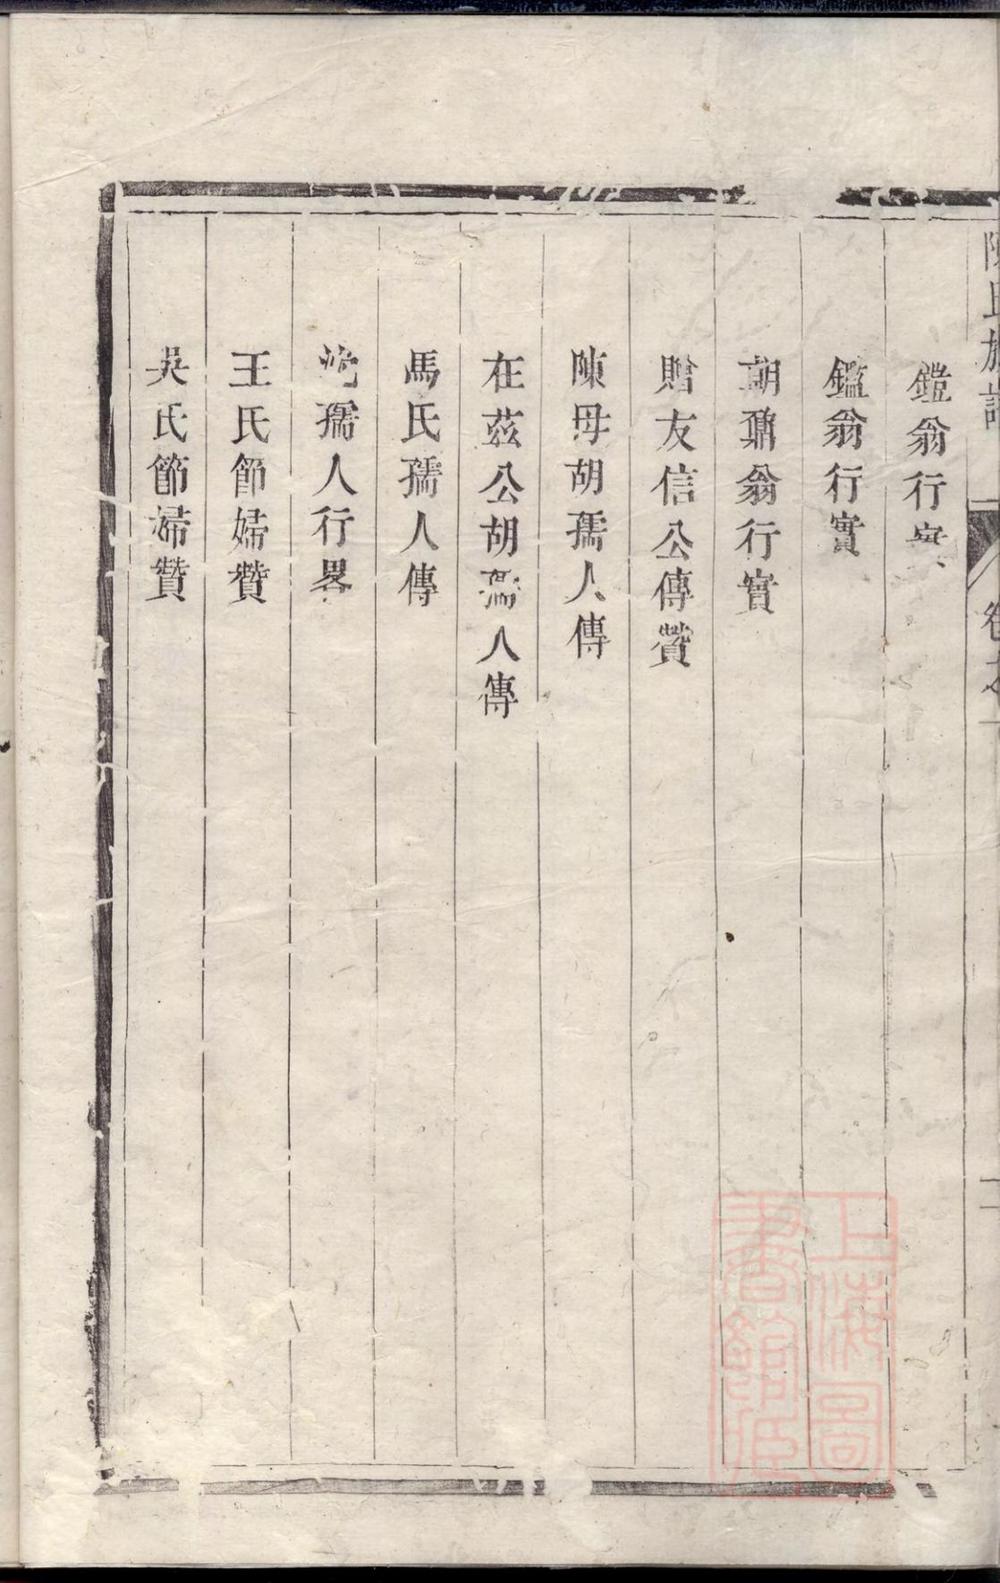 陳氏族譜 卷之 二
鏜翁行實
鑑翁行實
朝鼐翁行實
贈友信公傳贊
陳母胡孺人傳
在茲公胡孺人傳
馬氏孺人傳
孺人行畧
王氏節婦贊
吳氏節婦贊
上海圖書館藏